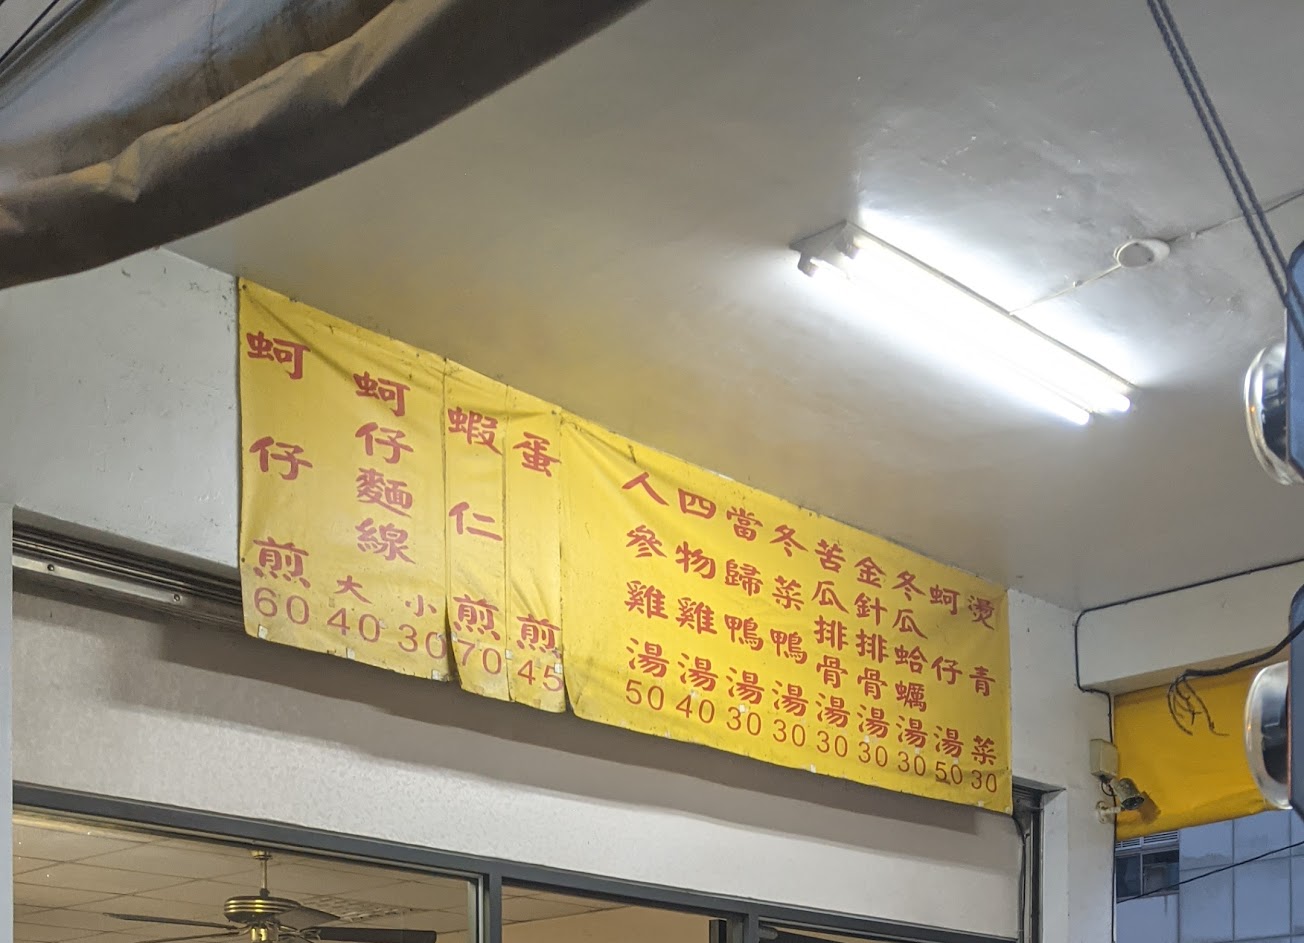 蚵仔煎 60
蚵仔麵線 大40 小30
蝦仁煎 70
蛋煎 45
人參雞湯 50
四物雞湯 40
當歸鴨湯 30
冬菜鴨湯 30
苦瓜排骨湯 30
金針排骨湯 30
冬瓜蛤蠣湯 30
蚵仔湯 50
燙青菜 30